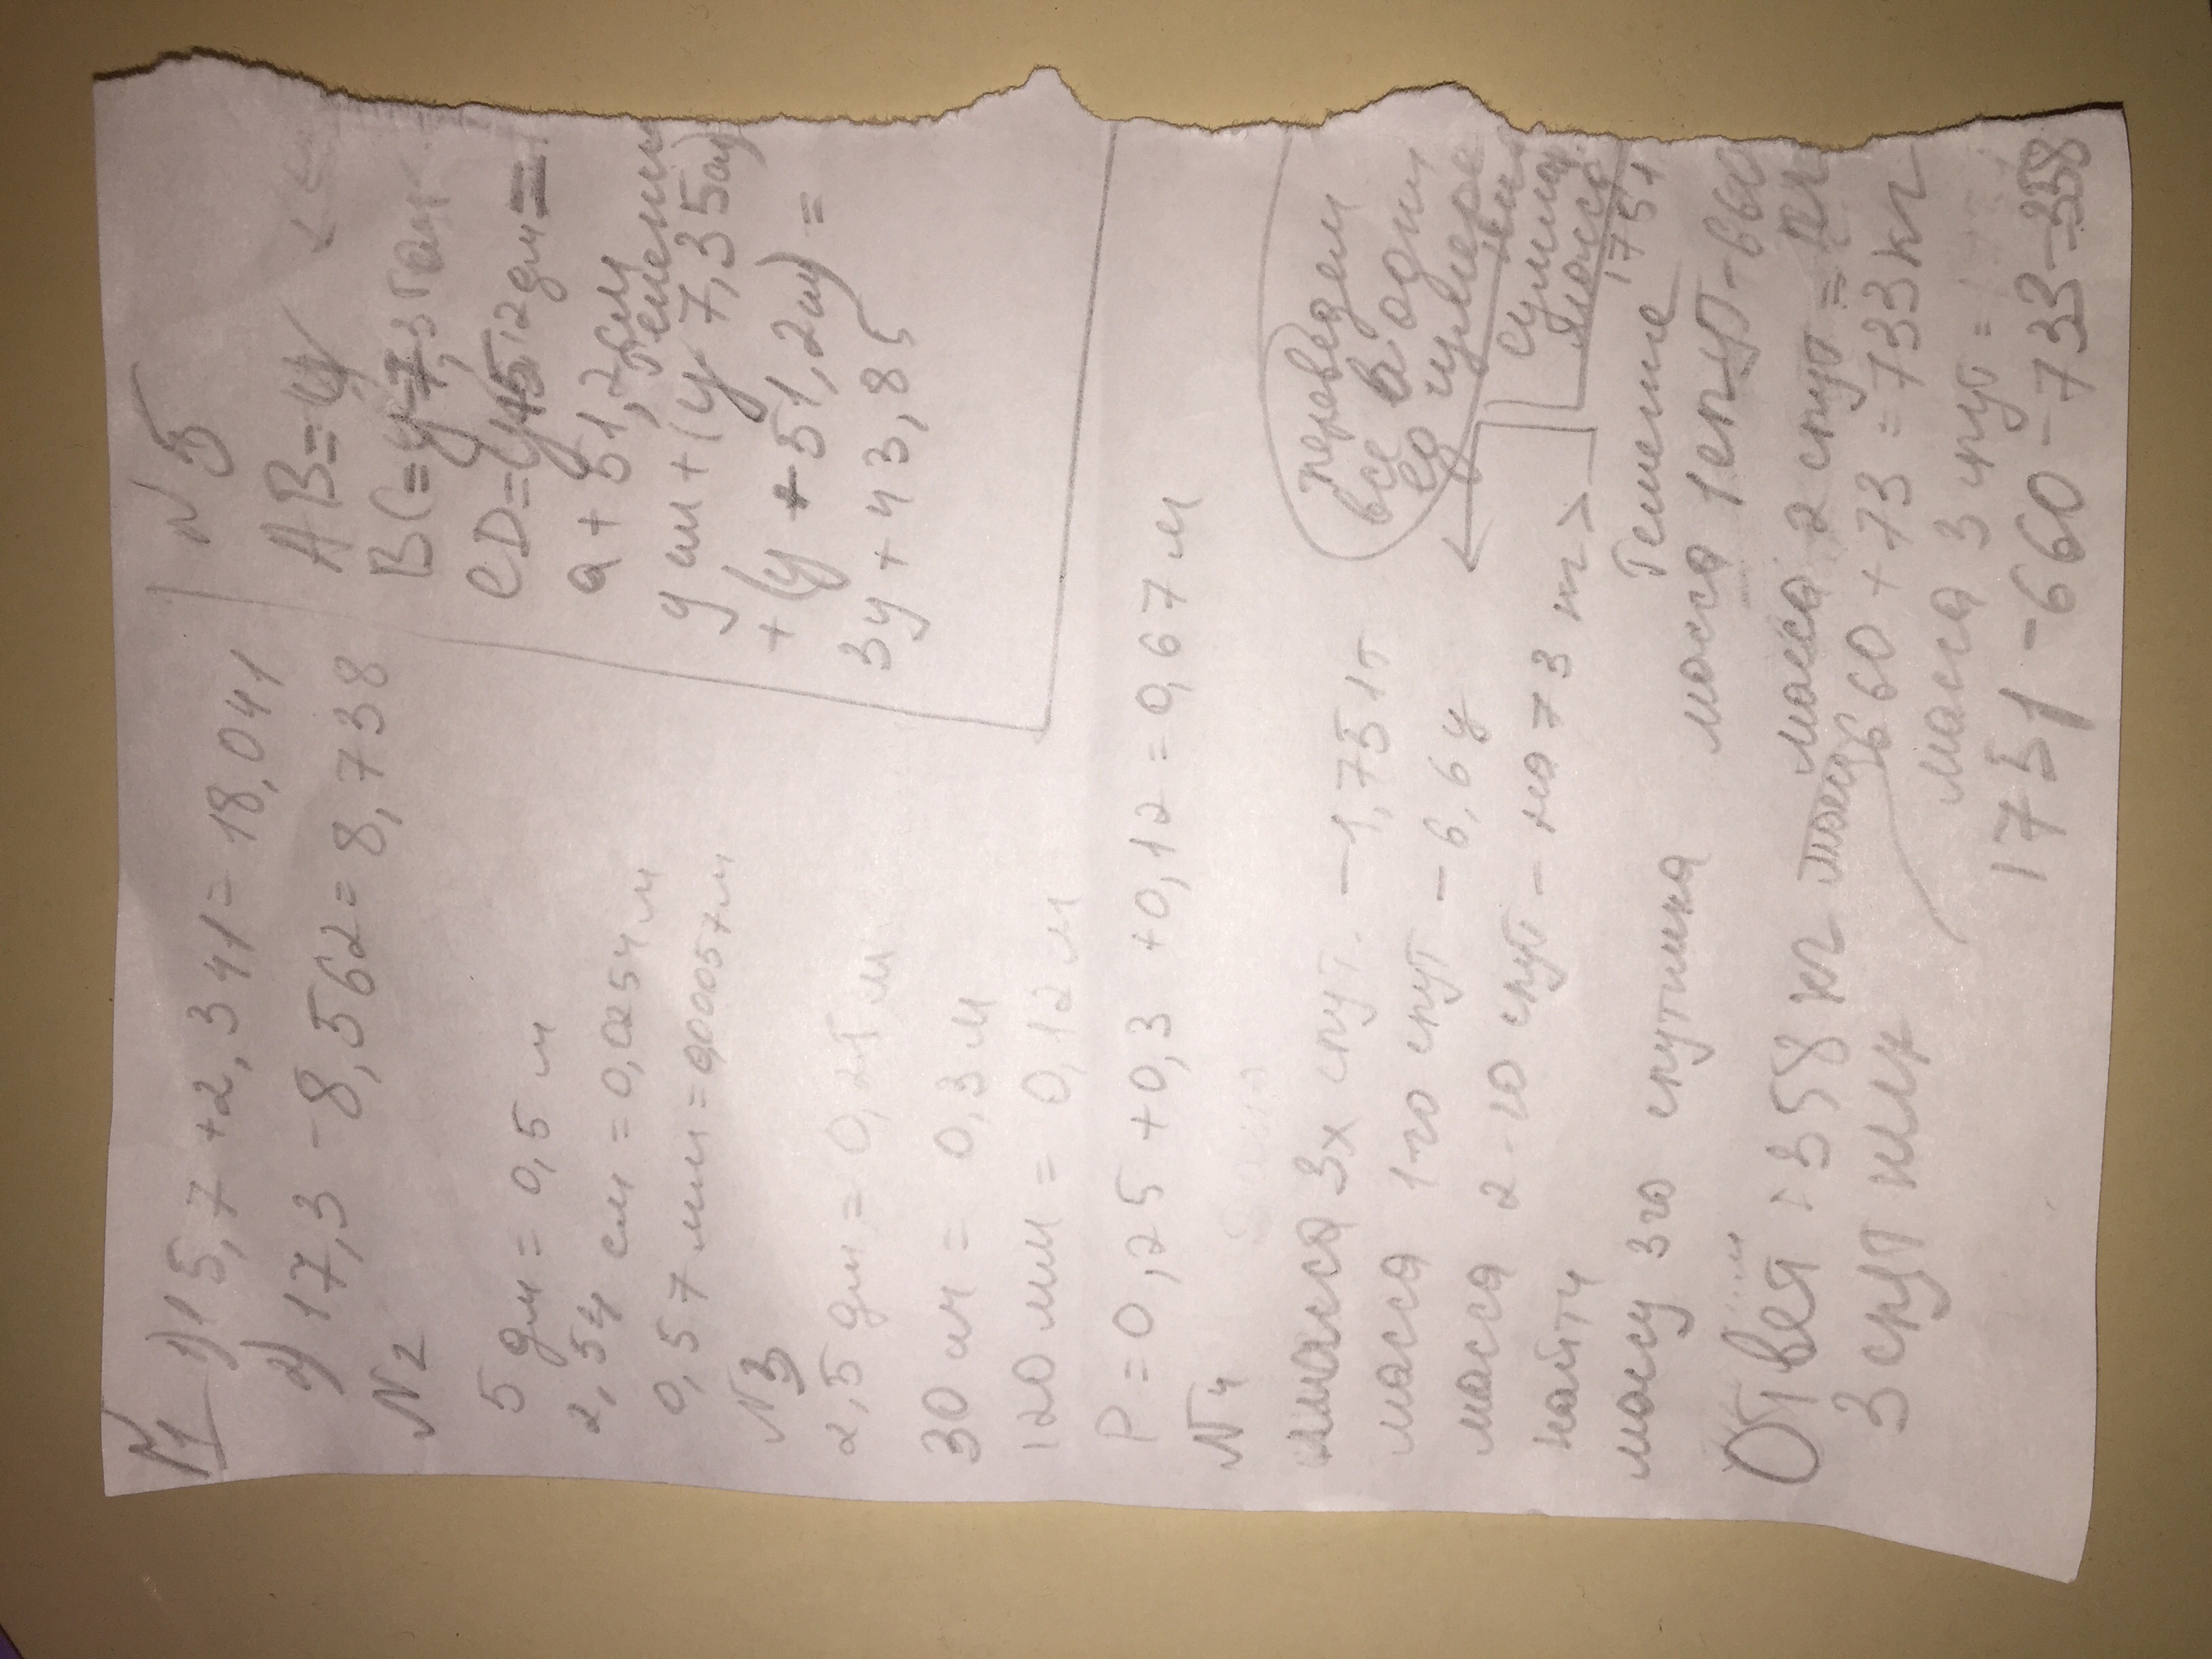 N1 1) 15,7 + 2,341 = 18,041
2) 17,3 - 8,562 = 8,738
N2
5 дм = 0,5 м
2,54 см = 0,0254 м
0,57 мм = 0,00057 м
N3
2,5 дм = 0,25 м
30 см = 0,3 м
120 мм = 0,12 м
P = 0,25 + 0,3 + 0,12 = 0,67 м
N4
масса 3х спут. - 1,751т
масса 1-го спут - 6,6ц
масса 2-го спут - на 73 кг >
найти
массу 3го спутника
Ответ: 358 кг масса
3 спутник
N5
AB = y
BC = y 7,3
CD = y 5,12 дм =
a + 51,2 см
Решение
y см + (y 7,35см)
+ (y + 51,2см) =
3y + 43,85
переведем
все в одну
ед измере
сумма
масса
1751
Решение
масса 1 спут
масса 2 спут =
660 + 73 = 733 кг
масса 3 спут =
1751 - 660 - 733 = 358